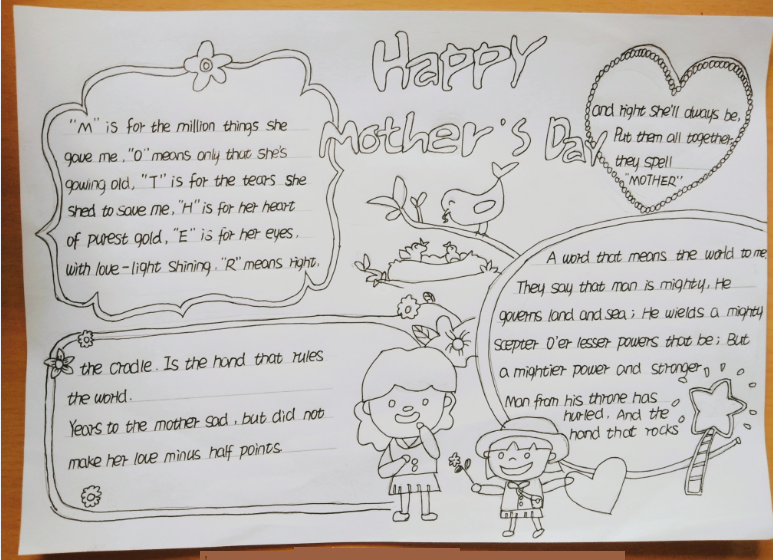 Happy
Mother's Day
"M" is for the million things she
gave me, "O" means only that she's
gowing old, "T" is for the tears she
shed to save me, "H" is for her heart
of purest gold, "E" is for her eyes,
with love-light shining. "R" means right,
and right she'll always be,
Put them all together,
they spell
"MOTHER"
A word that means the world to me
They say that man is mighty, He
governs land and sea; He wields a mighty
scepter O'er lesser powers that be; But
a mightier power and stronger,
Man from his throne has
hurled, And the
hand that rocks
the cradle. Is the hand that rules
the world.
Years to the mother sad, but did not
make her love minus half points.